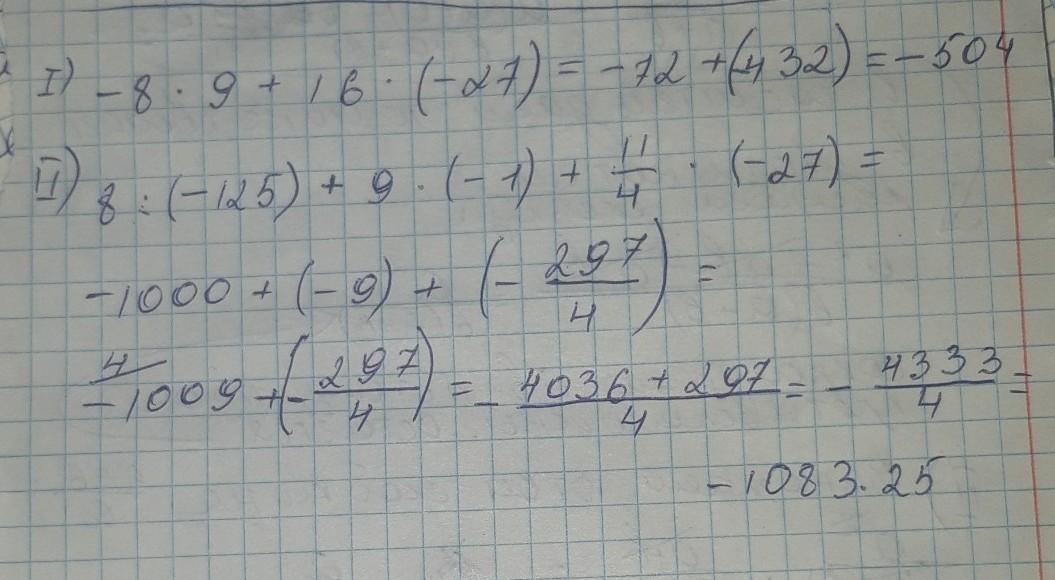 I) -8 · 9 + 16 · (-27) = -72 + (-432) = -504
II) 8 : (-125) + 9 · (-1) + 11/4 · (-27) =
-1000 + (-9) + (- 297/4) =
4/ -1009 + (- 297/4) = - 4036 + 297/4 = - 4333/4 =
-1083.25